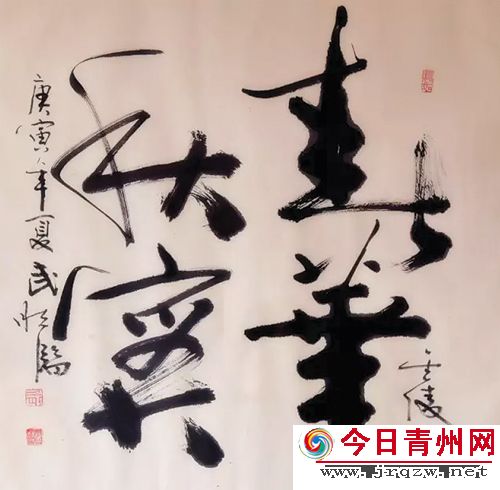 春華
秋實
庚寅年夏武
金陵
今日青州网
www.jrqzw.net